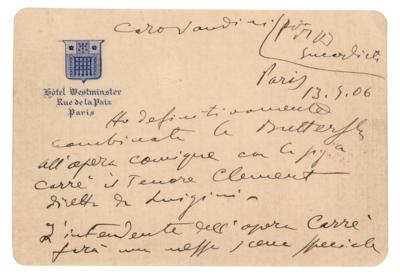 Caro Vandini
Hôtel Westminster
Rue de la Paix
Paris
Paris
13.5.06
Ho definitivamente
combinato la Butterfly
all'opera comique con la
Carrè il Tenore Clement
diretta da Luigini.
L'intendente dell'opera Carrè
farà una messa scena speciale